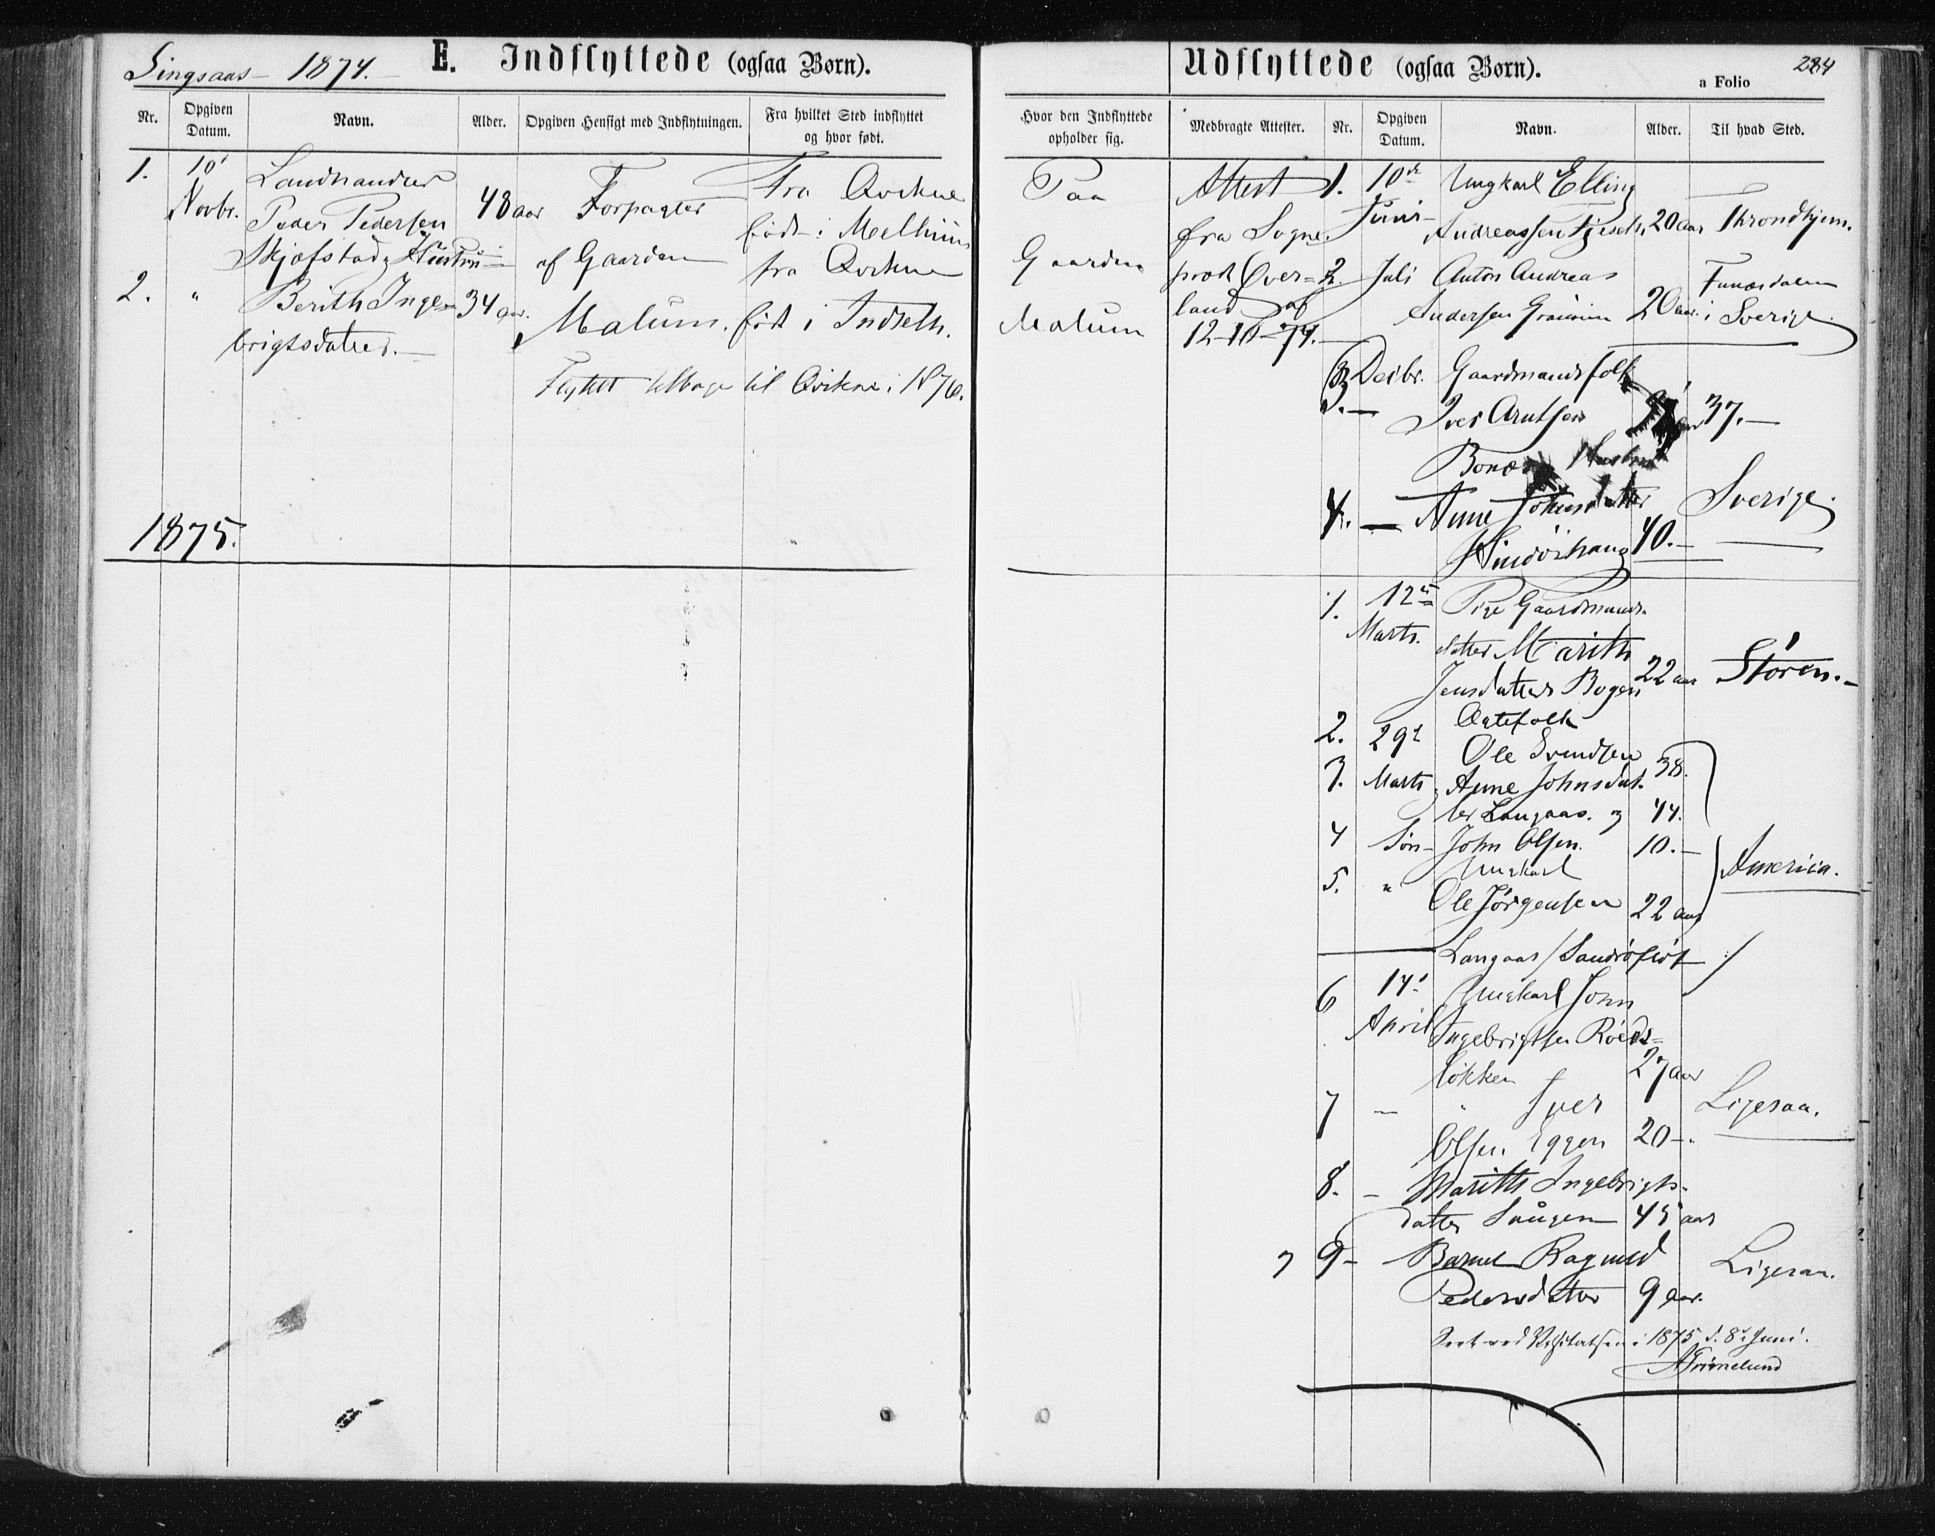 Singsaas 1874.
E. Indflyttede (ogsaa Børn).
Nr.
Opgiven Datum.
Navn.
Alder.
Opgiven Hensigt med Indflytningen.
Fra hvilket Sted indflyttet og hvor født.
1.
10'
Novbr.
Landhandler
Peder Pedersen
Skjefstad, Hustru
48 aar
Forpagter
af Gaarden
Malum.
Fra Qvikne
født i Melhuus
2.
"
Berith Inge-
brigtsdatter.
34 aar.
fra Qvikne
født i Indseth.
Flyttet tilbage til Qvikne i 1876.
1875.
Hvor den Indflyttede opholder sig.
Medbragte Attester.
Paa
Gaarden
Malum
Attest
fra Sogne-
præst Øver-
land af
12-10-74.
Udflyttede (ogsaa Børn).
a Folio
284
Nr.
Opgiven Datum.
Navn.
Alder.
Til hvad Sted.
1. 10de Juni
Ungkarl Elling
Andreassen 20 aar Throndhjem.
2. Juli Anton Andreas
Andersen 20 aar. Funæsdalen
i Sverige.
3. Decbr. Gaardmandsfolk
Iver Arntsen 37.
Hustru
4. — Anne
40.— Sverige.
1. 12te
Marts.
Pige Gaardmands-
datter Marith
Jensdatter Bogen 22 aar Støren.
2. 29de
Ægtefolk
Ole Svendsen 38.
3. Marts Anne Johnsdat-
ter Langaas. og 44.
4 Søn John Olsen. 10.—
5. " Ungkarl
Ole Jørgensen 22 aar
America.
Langaas
6 14'
April
Ungkarl John
Ingebrigtsen Røeds-
løkken 27 aar
7 — " Iver
Olsen Eggen 20—. Ligesaa.
8. — Marith Ingebrigts-
datter 45 aar
9 — Barnet Ragnild
Pedersdatter 9 aar. Ligesaa.
Seet ved Visitatsen i 1875 d. 8de Juni.
AGrimelund